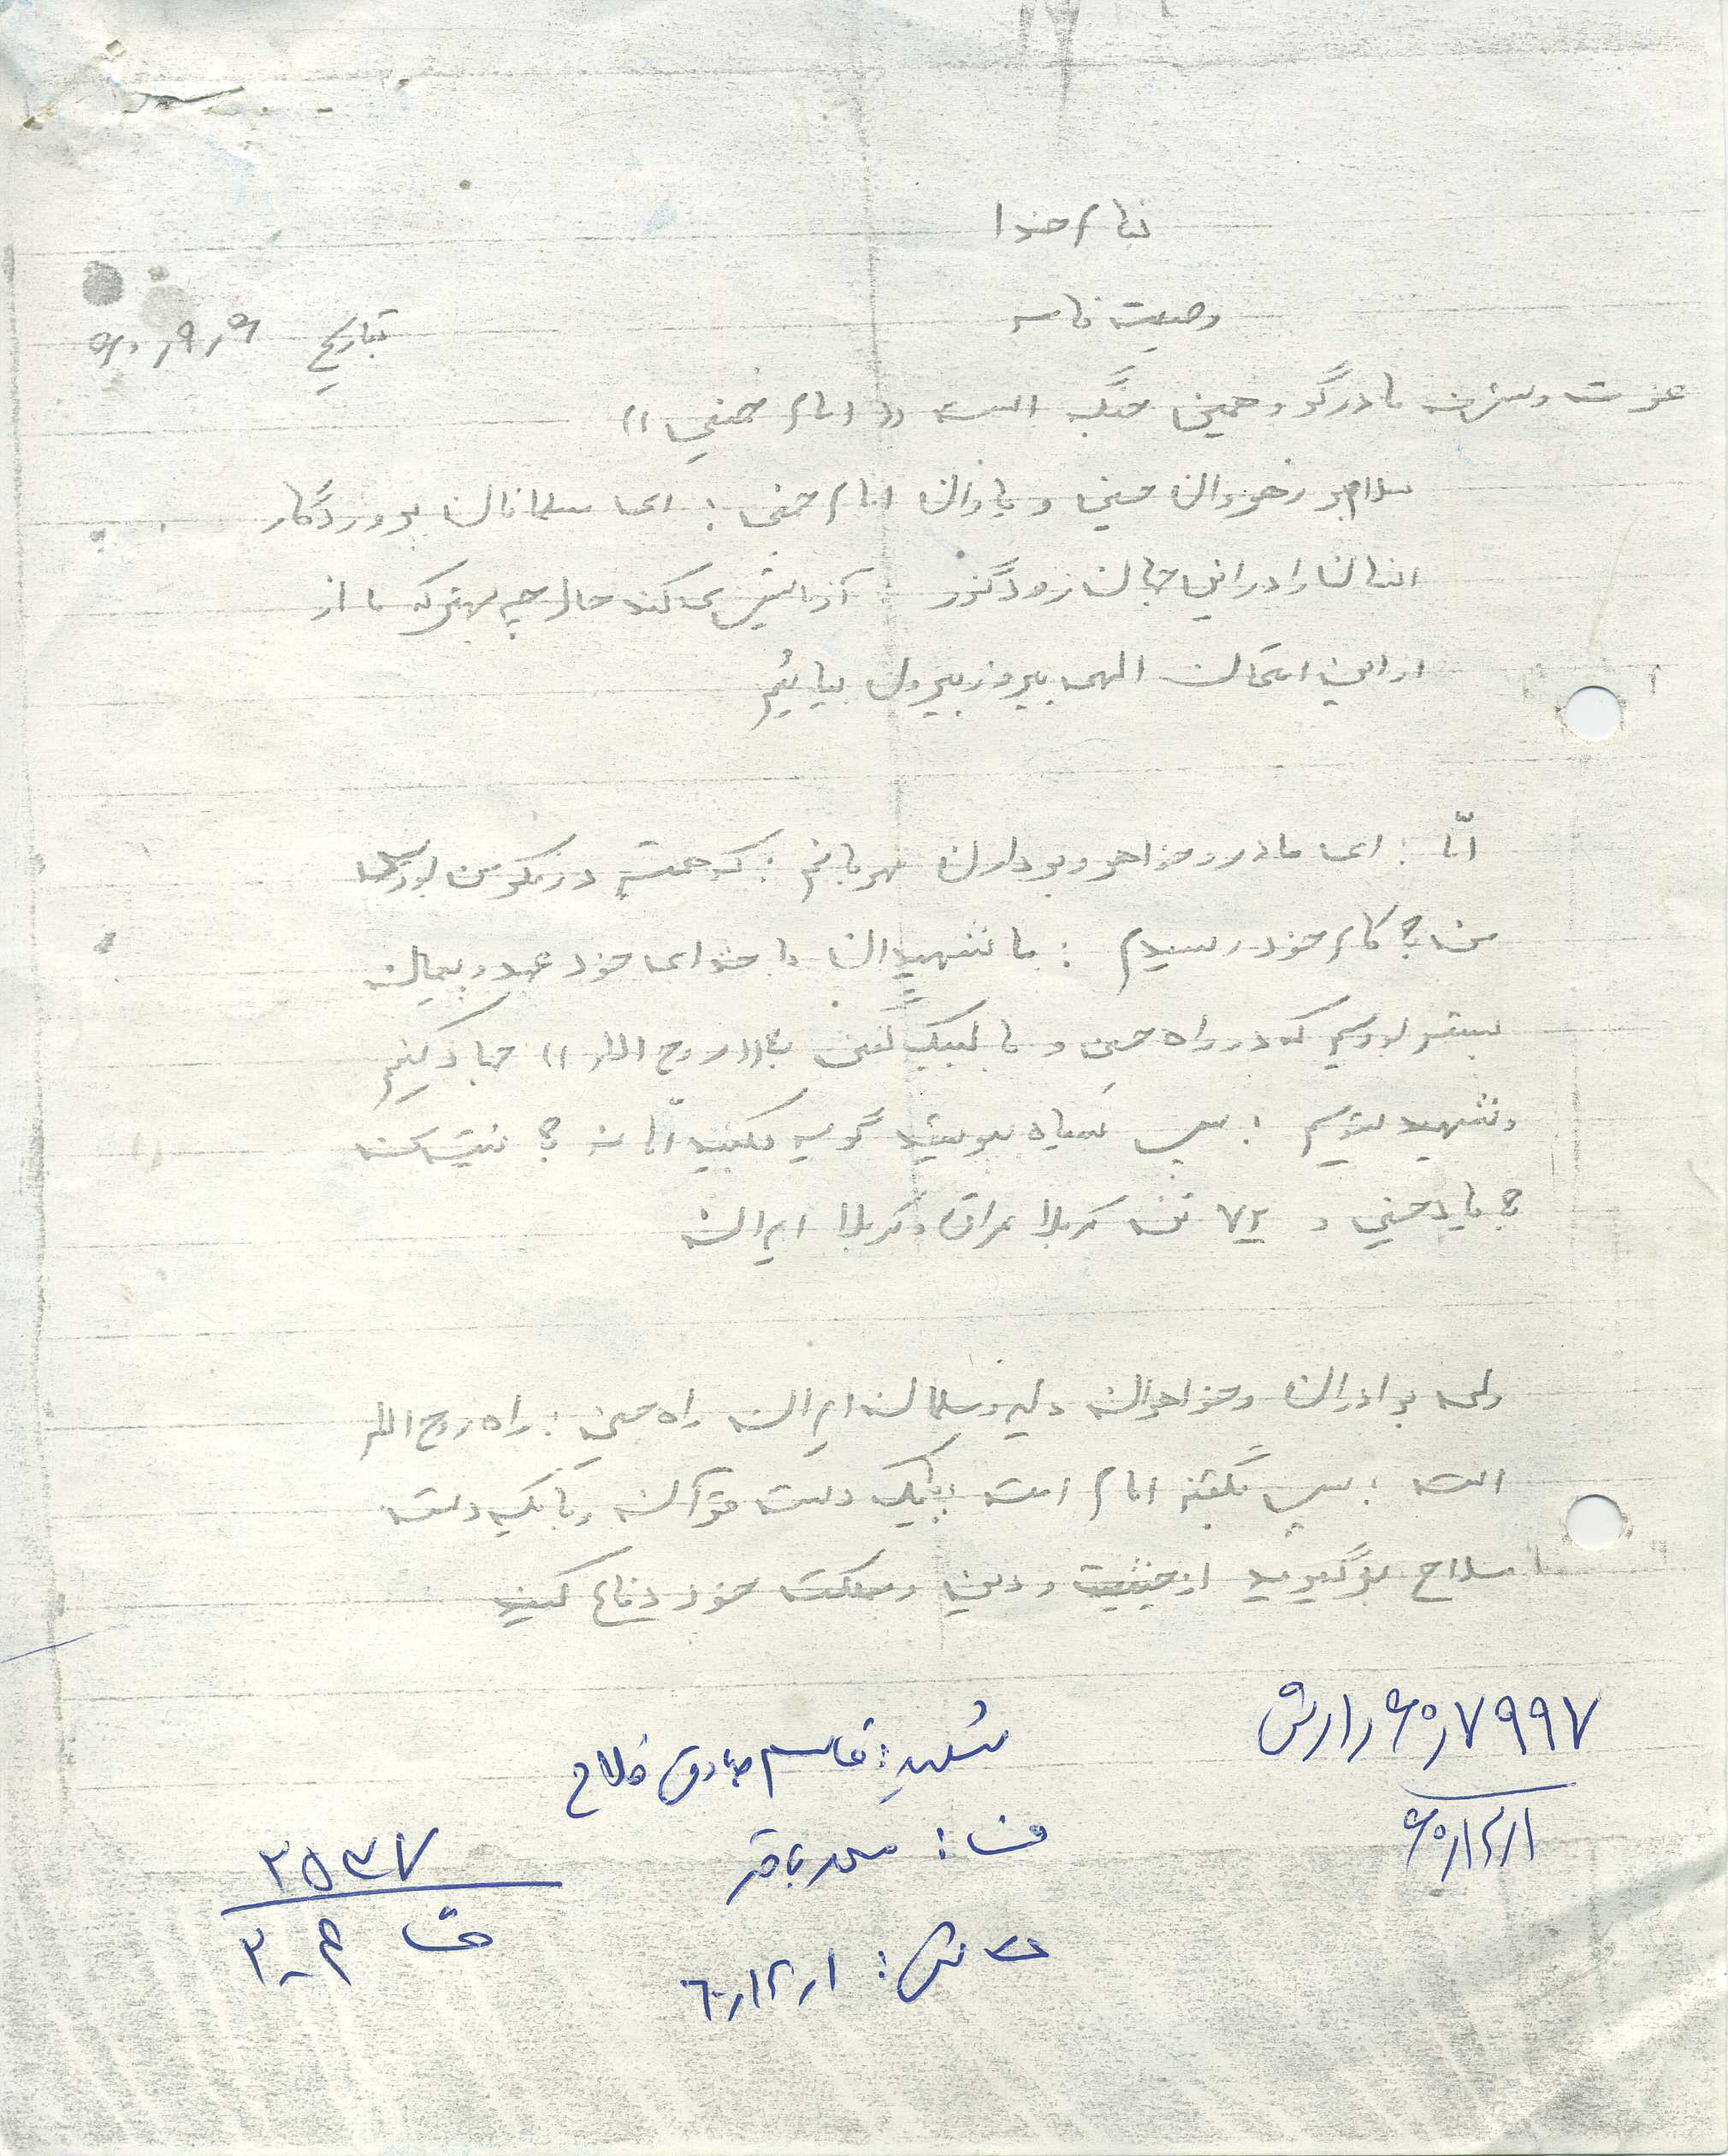 بنام خدا
وصیت نامه
بتاریخ ۶۰٫۹٫۹
عزت و شرف ما در گرو همین جنگ است «امام خمینی»
سلام بر رهروان حسین و یاران امام خمینی : ای مسلمانان پروردگار
انسان را در این جهان زودگذر آزمایش می کند حال چه بهتر که ما از
از این امتحان الهی پیروز بیرون بیائیم
امّا : ای مادر و خواهر و برداران مهربانم : که همیشه در فکر من بودید
من به کام خود رسیدم : ما شهیدان با خدای خود عهد و پیمان
بسته بودیم که در راه حسین و با لبیک گفتن به «روح الله» جهاد کنیم
و شهید شویم : پس سیاه بپوشید گریه بکنید امّا نه به
به یاد حسین و ۷۲ تن کربلا عراق و کربلا ایران
ولی برادران و خواهران دلیر و مسلمان ایران راه حسین : راه روح الله
است : پس بگفته امام امت با یک دست قرآن و با یک دست
سلاح برگیرید از حیثیت و دین و مملکت خود دفاع کنید
۶۰٫۷۹۹۷
۶۰٫۱۲٫۱
شهید : قاسم صادق فلاح
ف : محمد باقر
ت ش : ۶۰٫۱۲٫۱
۳۵۳۷